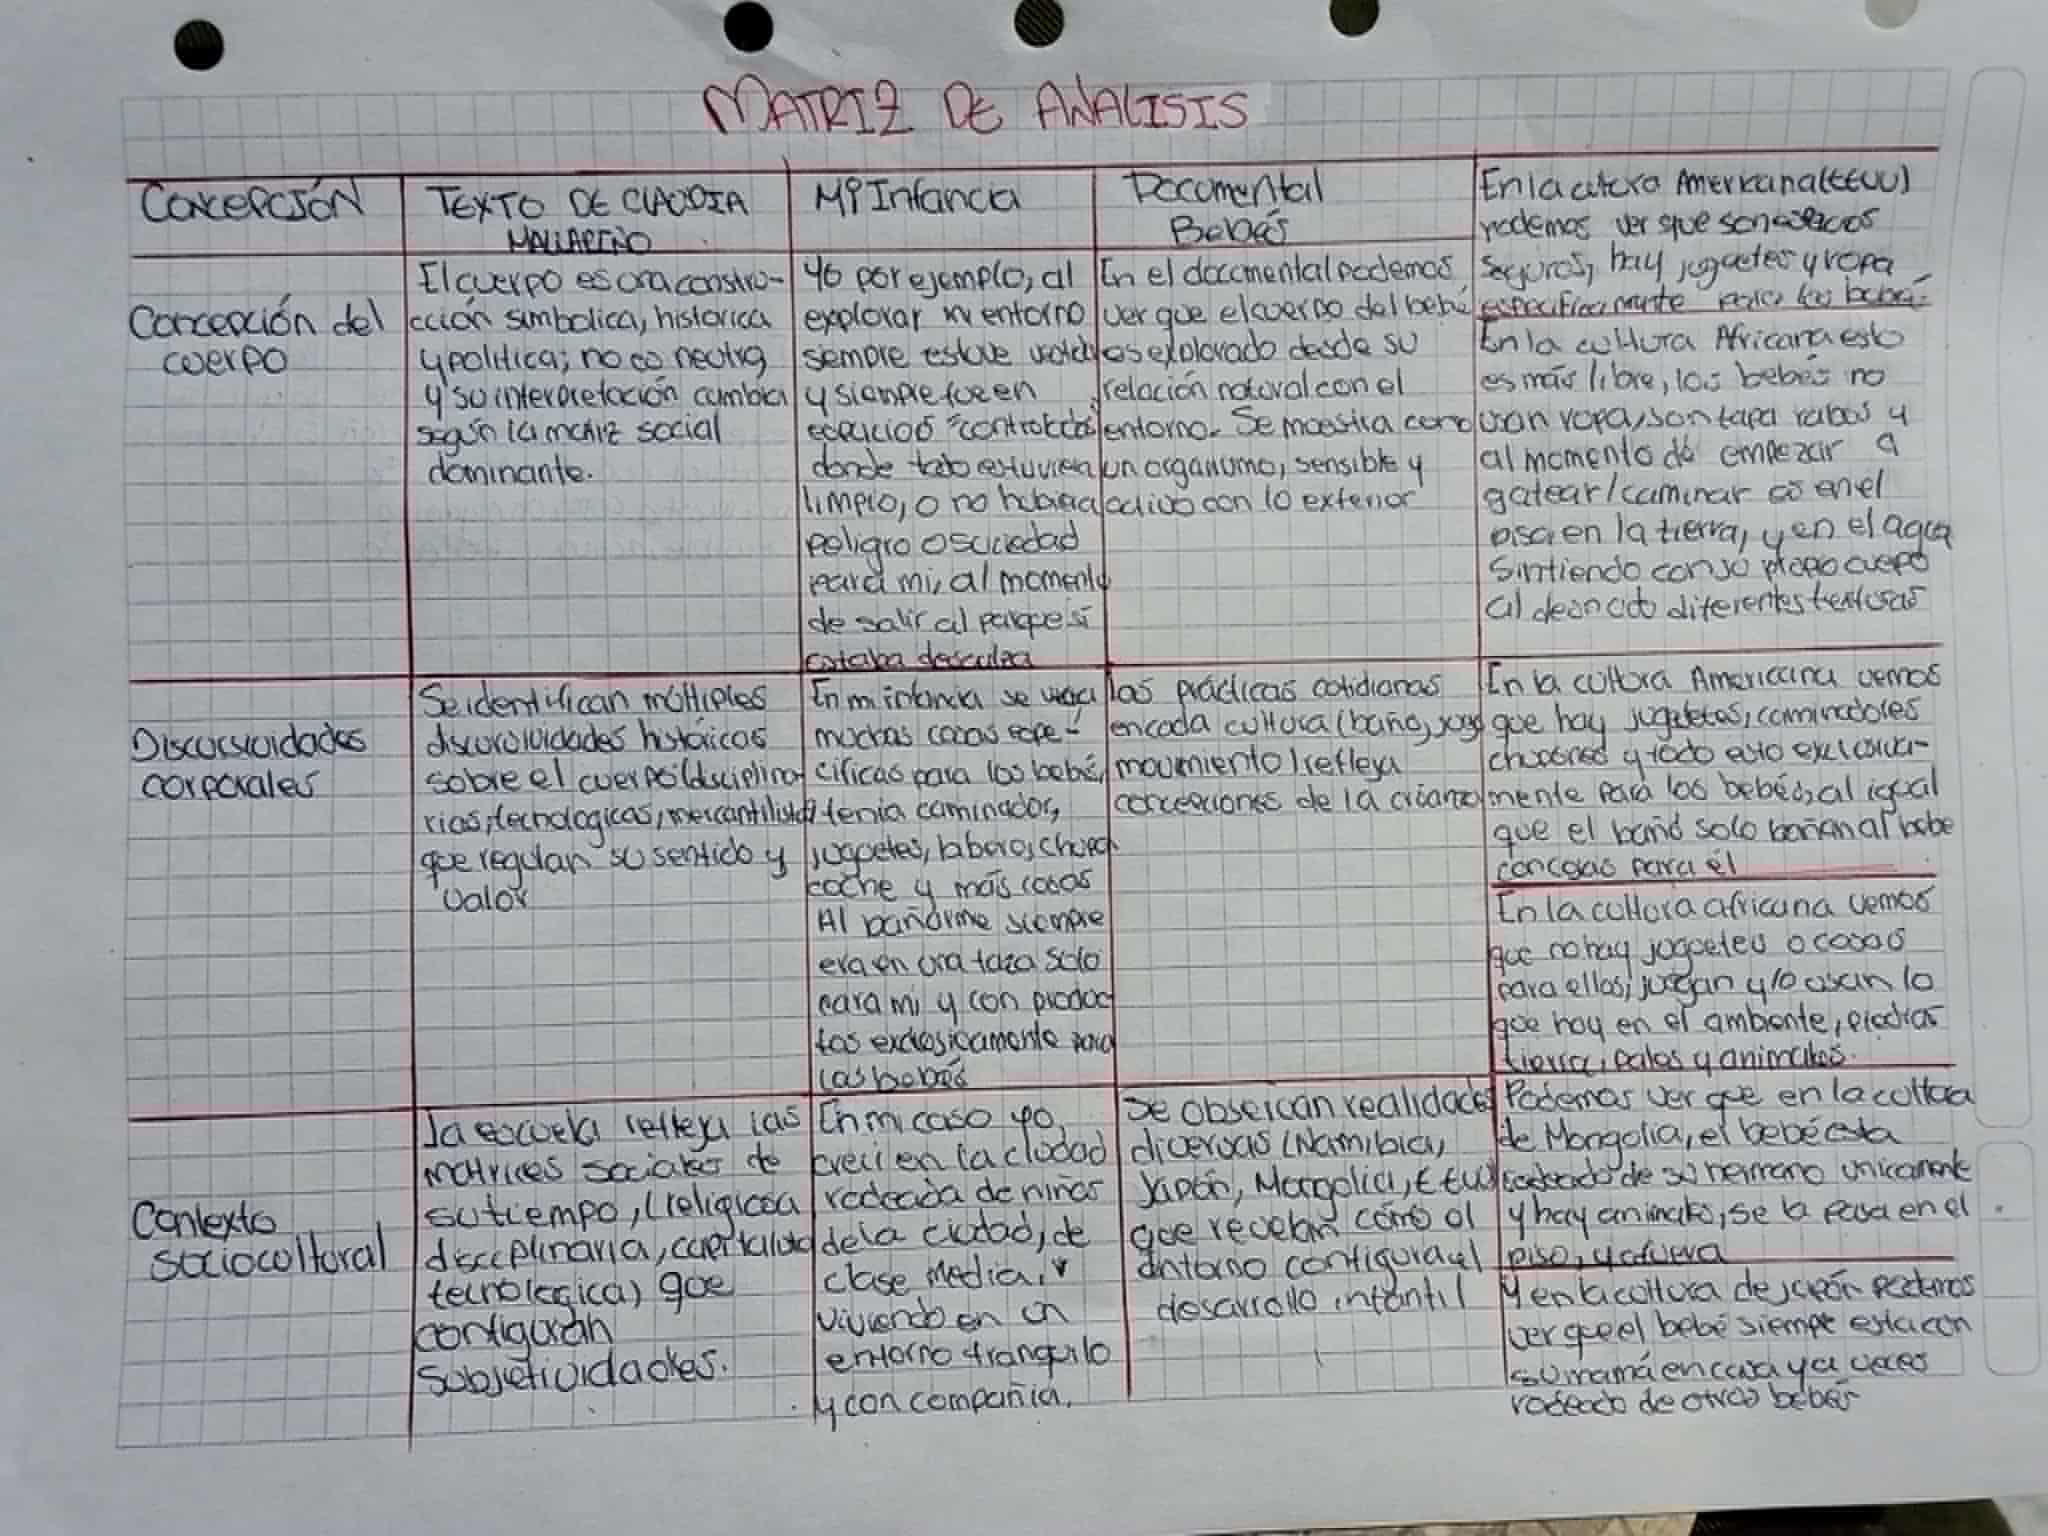 MATRIZ DE ANALISIS
CONCEPCIÓN
TEXTO DE CLAUDIA
MALLARINO
Mi Infancia
Documental
Bebés
En la cultura Americana (EEUU)
podemos ver que son espacios
seguros, hay juguetes y ropa
específicamente para los bebés
Concepción del
cuerpo
El cuerpo es una constru-
cción simbolica, historica
y politica; no es neutra,
y su interpretación cambia
según la matriz social
dominante.
Yo por ejemplo, al
explorar mi entorno
siempre estuve vestida
y siempre fue en
espacios "controlados"
donde todo estuviera
limpio, o no hubiera
peligro o suciedad
para mi, al momento
de salir al parque si
estaba descalza
En el documental podemos
ver que el cuerpo del bebé
es explorado desde su
relación natural con el
entorno. Se muestra como
un organismo, sensible y
activo con lo exterior
En la cultura Africana esto
es más libre, los bebés no
usan ropa, son tapa rabos y
al momento de empezar a
gatear/caminar es en el
piso, en la tierra, y en el agua
Sintiendo con su propio cuerpo
al desnudo diferentes texturas
Discursividades
corporales
Se identifican múltiples
discursividades históricas
sobre el cuerpo (disciplina-
rias, tecnologicas, mercantilistas)
que regulan su sentido y
valor
En mi infancia se veía
muchas cosas espe-
cificas para los bebés,
tenia caminador,
juguetes, labero, chupa
coche y más cosas
Al bañarme siempre
era en una taza solo
para mi y con produc
tos exclusivamente para
las bebés
las prácticas cotidianas
en cada cultura (baño, juego
movimiento) refleja
concepciones de la crianza
En la cultura Americana vemos
que hay juguetes, caminadores
chupones y todo esto exclusiva-
mente para los bebés, al igual
que el baño solo bañan al bebe
con cosas para él
En la cultura africana vemos
que no hay juguetes o cosas
para ellos, juegan y/o usan lo
que hay en el ambiente, piedras
tierra, palos y animales.
Contexto
sociocultural
La escuela refleja las
matrices sociales de
su tiempo, (religiosa
disciplinaria, capitalista
tecnologica) que
configuran
subjetividades.
En mi caso yo,
crecí en la ciudad
rodeada de niños
de la ciudad, de
clase media,
viviendo en un
entorno tranquilo
y con compañia.
Se observan realidades
diversas (Namibia,
Japón, Mongolia, EEUU)
que revelan cómo el
entorno configura el
desarrollo infantil
Podemos ver que en la cultura
de Mongolia, el bebé esta
rodeado de su hermano unicamente
y hay animales, se la pasa en el
piso, y afuera
Y en la cultura de japón podemos
ver que el bebé siempre esta con
su mamá en casa y a veces
rodeado de otros bebés